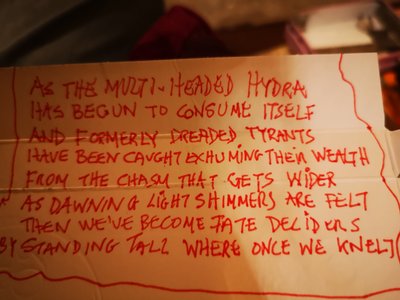 AS THE MULTI-HEADED HYDRA
HAS BEGUN TO CONSUME ITSELF
AND FORMERLY DREADED TYRANTS
HAVE BEEN CAUGHT EXHUMING THEIR WEALTH
FROM THE CHASM THAT GETS WIDER
AS DAWNING LIGHT SHIMMERS ARE FELT
THEN WE'VE BECOME FATE DECIDERS
BY STANDING TALL WHERE ONCE WE KNELT